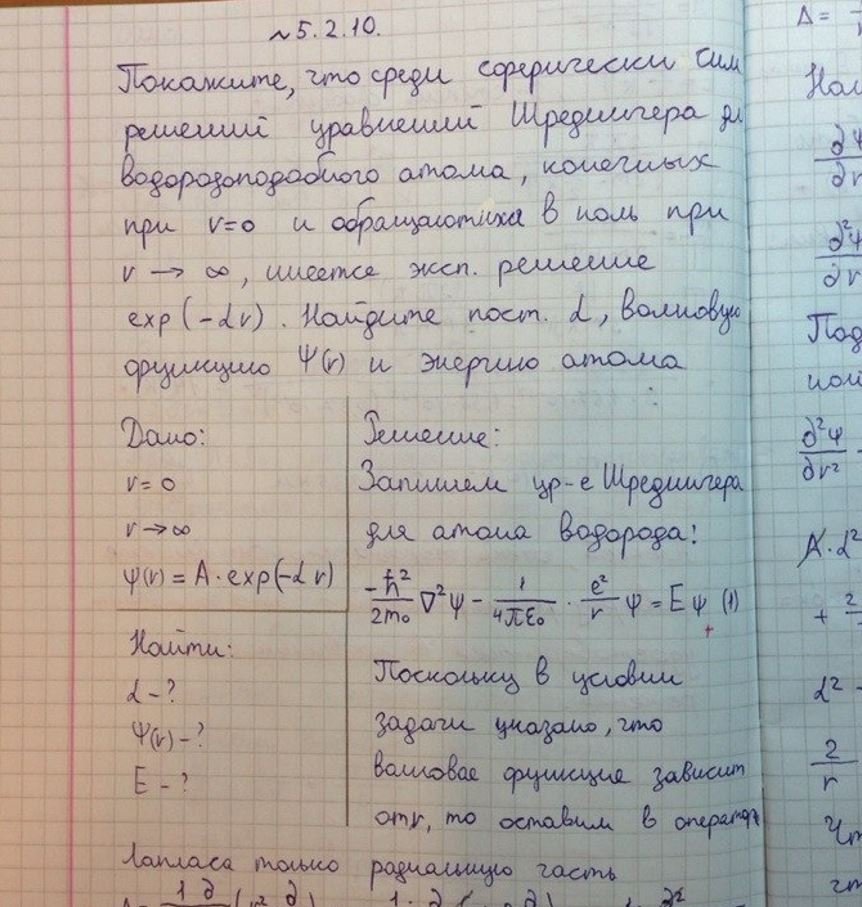 ~5.2.10.
Покажите, что среди сферически сим
решений уравнений Шредингера дл
водородоподобного атома, конечных
при r=0 и обращающихся в ноль при
r → ∞, имеется эксп. решение
exp(-αr). Найдите пост. α, волновую
функцию Ψ(r) и энергию атома
Дано:
r=0
r→∞
ψ(r) = A·exp(-αr)
Найти:
α-?
Ψ(r)-?
E-?
Решение:
Запишем ур-е Шредингера
для атома водорода:
-ħ²/2m₀ ∇²ψ - 1/4πε₀ · e²/r ψ = Eψ (1)
+
Поскольку в условии
задачи указано, что
волновая функция зависит
от r, то оставим в операторе
Лапласа только радиальную часть
Δ=
Най
∂Ψ
∂r
∂²Ψ
∂r
Под
∂²ψ
∂r²
A·α²
+ 2
α² -
2
r
Чт